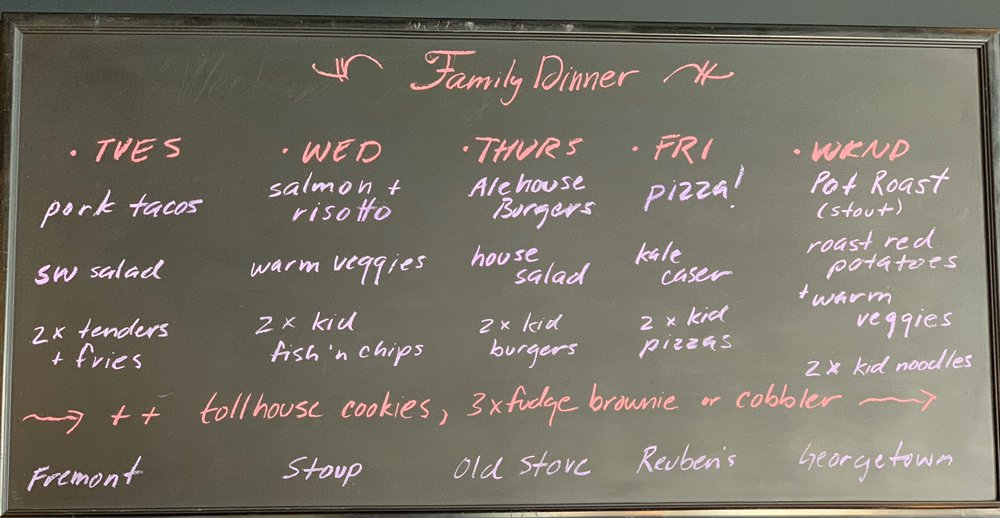 Family Dinner
· TUES
pork tacos
sw salad
2x tenders
+ fries
· WED
salmon +
risotto
warm veggies
2x kid
fish 'n chips
· THURS
Alehouse
Burgers
house
salad
2x kid
burgers
· FRI
pizza!
kale
caser
2x kid
pizzas
· WKND
Pot Roast
(stout)
roast red
potatoes
+ warm
veggies
2x kid noodles
→ ++ tollhouse cookies, 3x fudge brownie or cobbler →
Fremont
Stoup
Old Stove
Reuben's
Georgetown